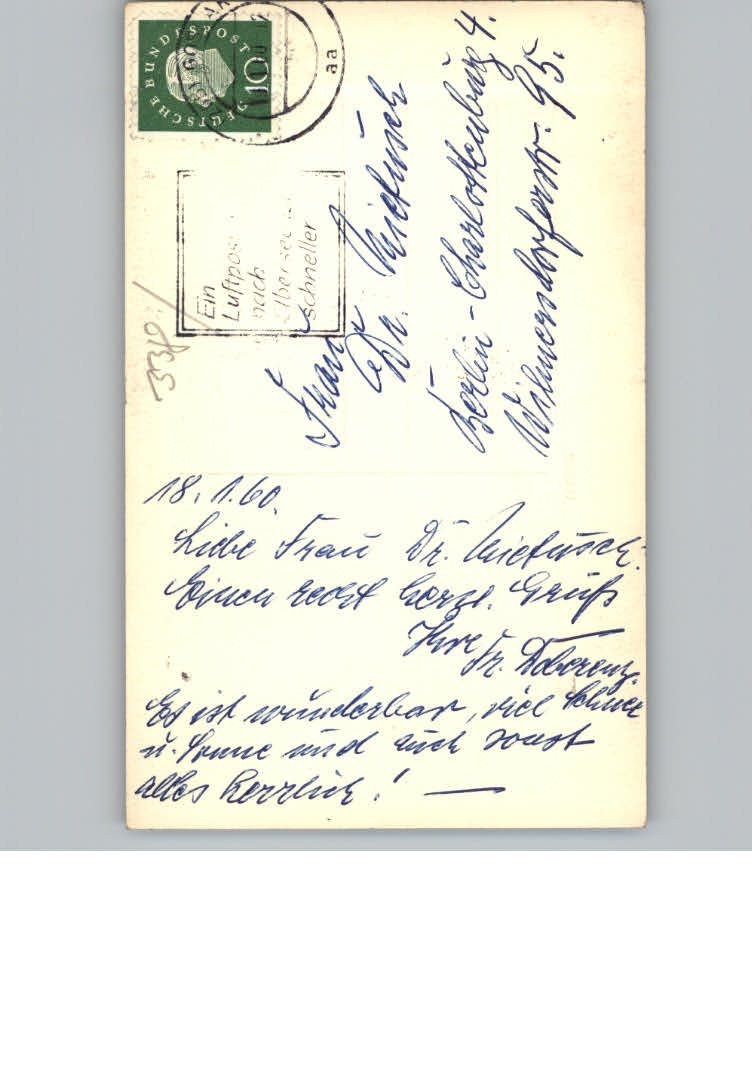 DEUTSCHE BUNDESPOST
10
aa
Ein
Luftpost
nach
Übersee
schneller
338
Frau
Dr.
Berlin-Charlottenburg 4.
Wilmersdorferstr. 95.
18.1.60.
Liebe Frau Dr.
Einen recht herzl. Gruß
Ihre
Fr. Doberenz.
Es ist wunderbar, viel Schnee
u. Sonne und auch sonst
alles herrlich! —